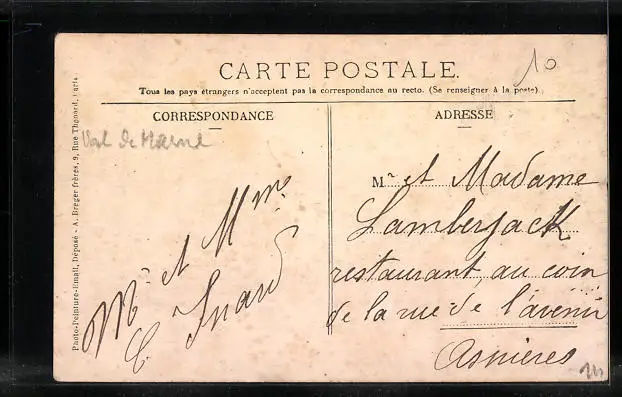 CARTE POSTALE.
10
Tous les pays étrangers n'acceptent pas la correspondance au recto. (Se renseigner à la poste).
CORRESPONDANCE
Val de Marne
Mr et Mme
C.
ADRESSE
Mr et Madame
Lamberjack
restaurant, au coin
de la rue de l'avenir
Asnières
Photo-Peinture-Email, Déposé - A. Breger frères, 9, Rue Thénard, Paris